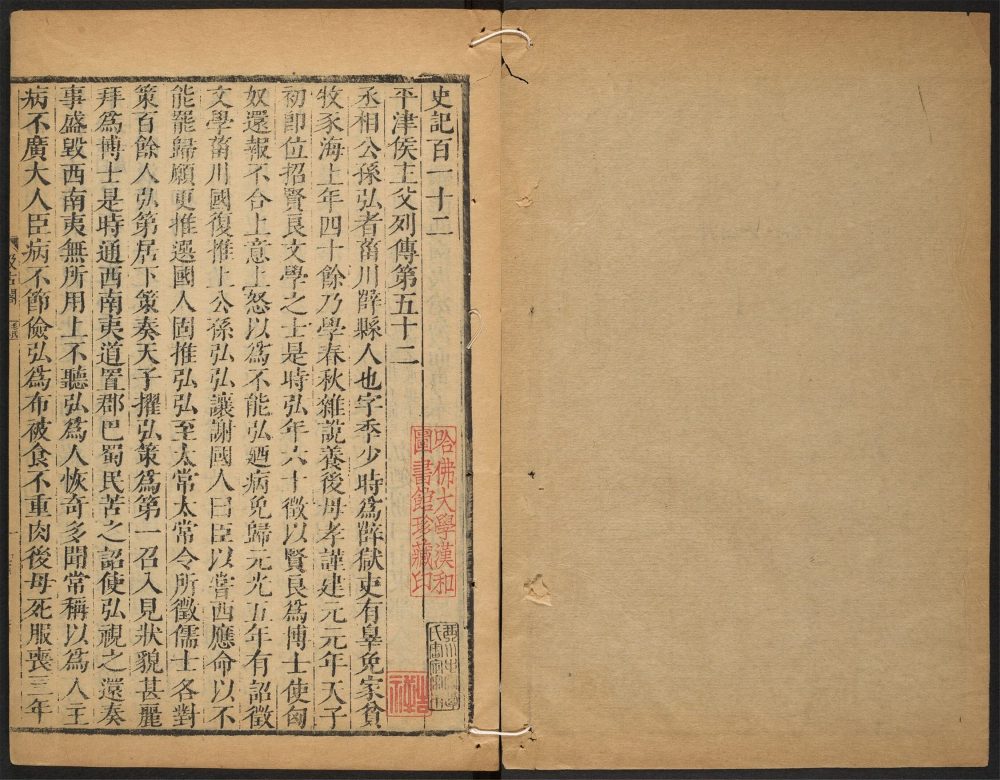 史記百一十二
平津侯主父列傳第五十二
丞相公孫弘者菑川薛縣人也字季少時爲薛獄吏有辠免家貧
牧豕海上年四十餘乃學春秋雜說養後母孝謹建元元年天子
初即位招賢良文學之士是時弘年六十徵以賢良爲博士使匈
奴還報不合上意上怒以爲不能弘迺病免歸元光五年有詔徵
文學菑川國復推上公孫弘弘讓謝國人曰臣以嘗西應命以不
能罷歸願更推選國人固推弘弘至太常太常令所徵儒士各對
策百餘人弘第居下策奏天子擢弘策爲第一召入見狀貌甚麗
拜爲博士是時通西南夷道置郡巴蜀民苦之詔使弘視之還奏
事盛毀西南夷無所用上不聽弘爲人恢奇多聞常稱以爲人主
病不廣大人臣病不節儉弘爲布被食不重肉後母死服喪三年
哈佛大學漢和
圖書館珍藏印